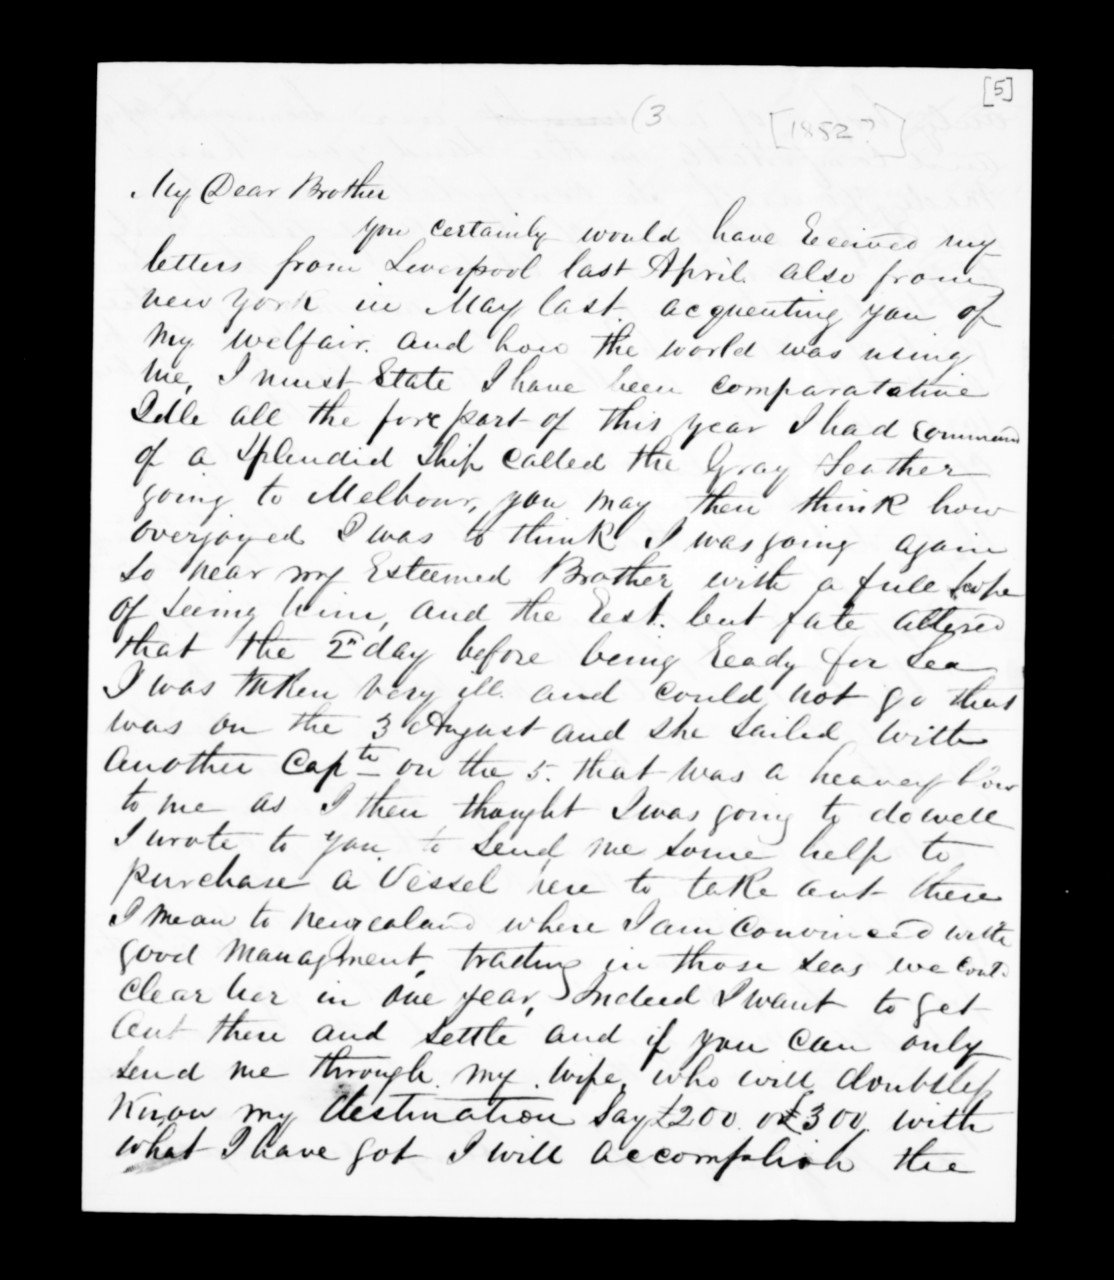 [5]
(3
[1852?]
My Dear Brother
you certainly would have Received my
letters from Liverpool last April also from
new York in May last. acquenting you of
my welfair. and how the world was using
me, I must State I have been comparatative
Idle all the fore part of this year I had command
of a Splendid Ship Called the Gray Feather
going to Melbour, you may then think how
overjoyed I was to think I was going again
so near my Esteemed Brother with a full scope
of seeing him, and the Rest. but fate altered
that the 2nd day before being Ready for Sea
I was taken very ill and could not go that
was on the 3 August and she Sailed with
another Captn on the 5. that was a heavey blow
to me as I then thought I was going to do well
I wrote to you to Send me some help to
purchase a Vessel here to take out there
I mean to Newzealand where I am Convinced with
good Managment, trading in those seas we could
clear her in one year, Indeed I want to get
out there and Settle and if you can only
send me through my wife, who will doubtless
Know my destination Say £200 or £300 with
what I have got I will accomplish the